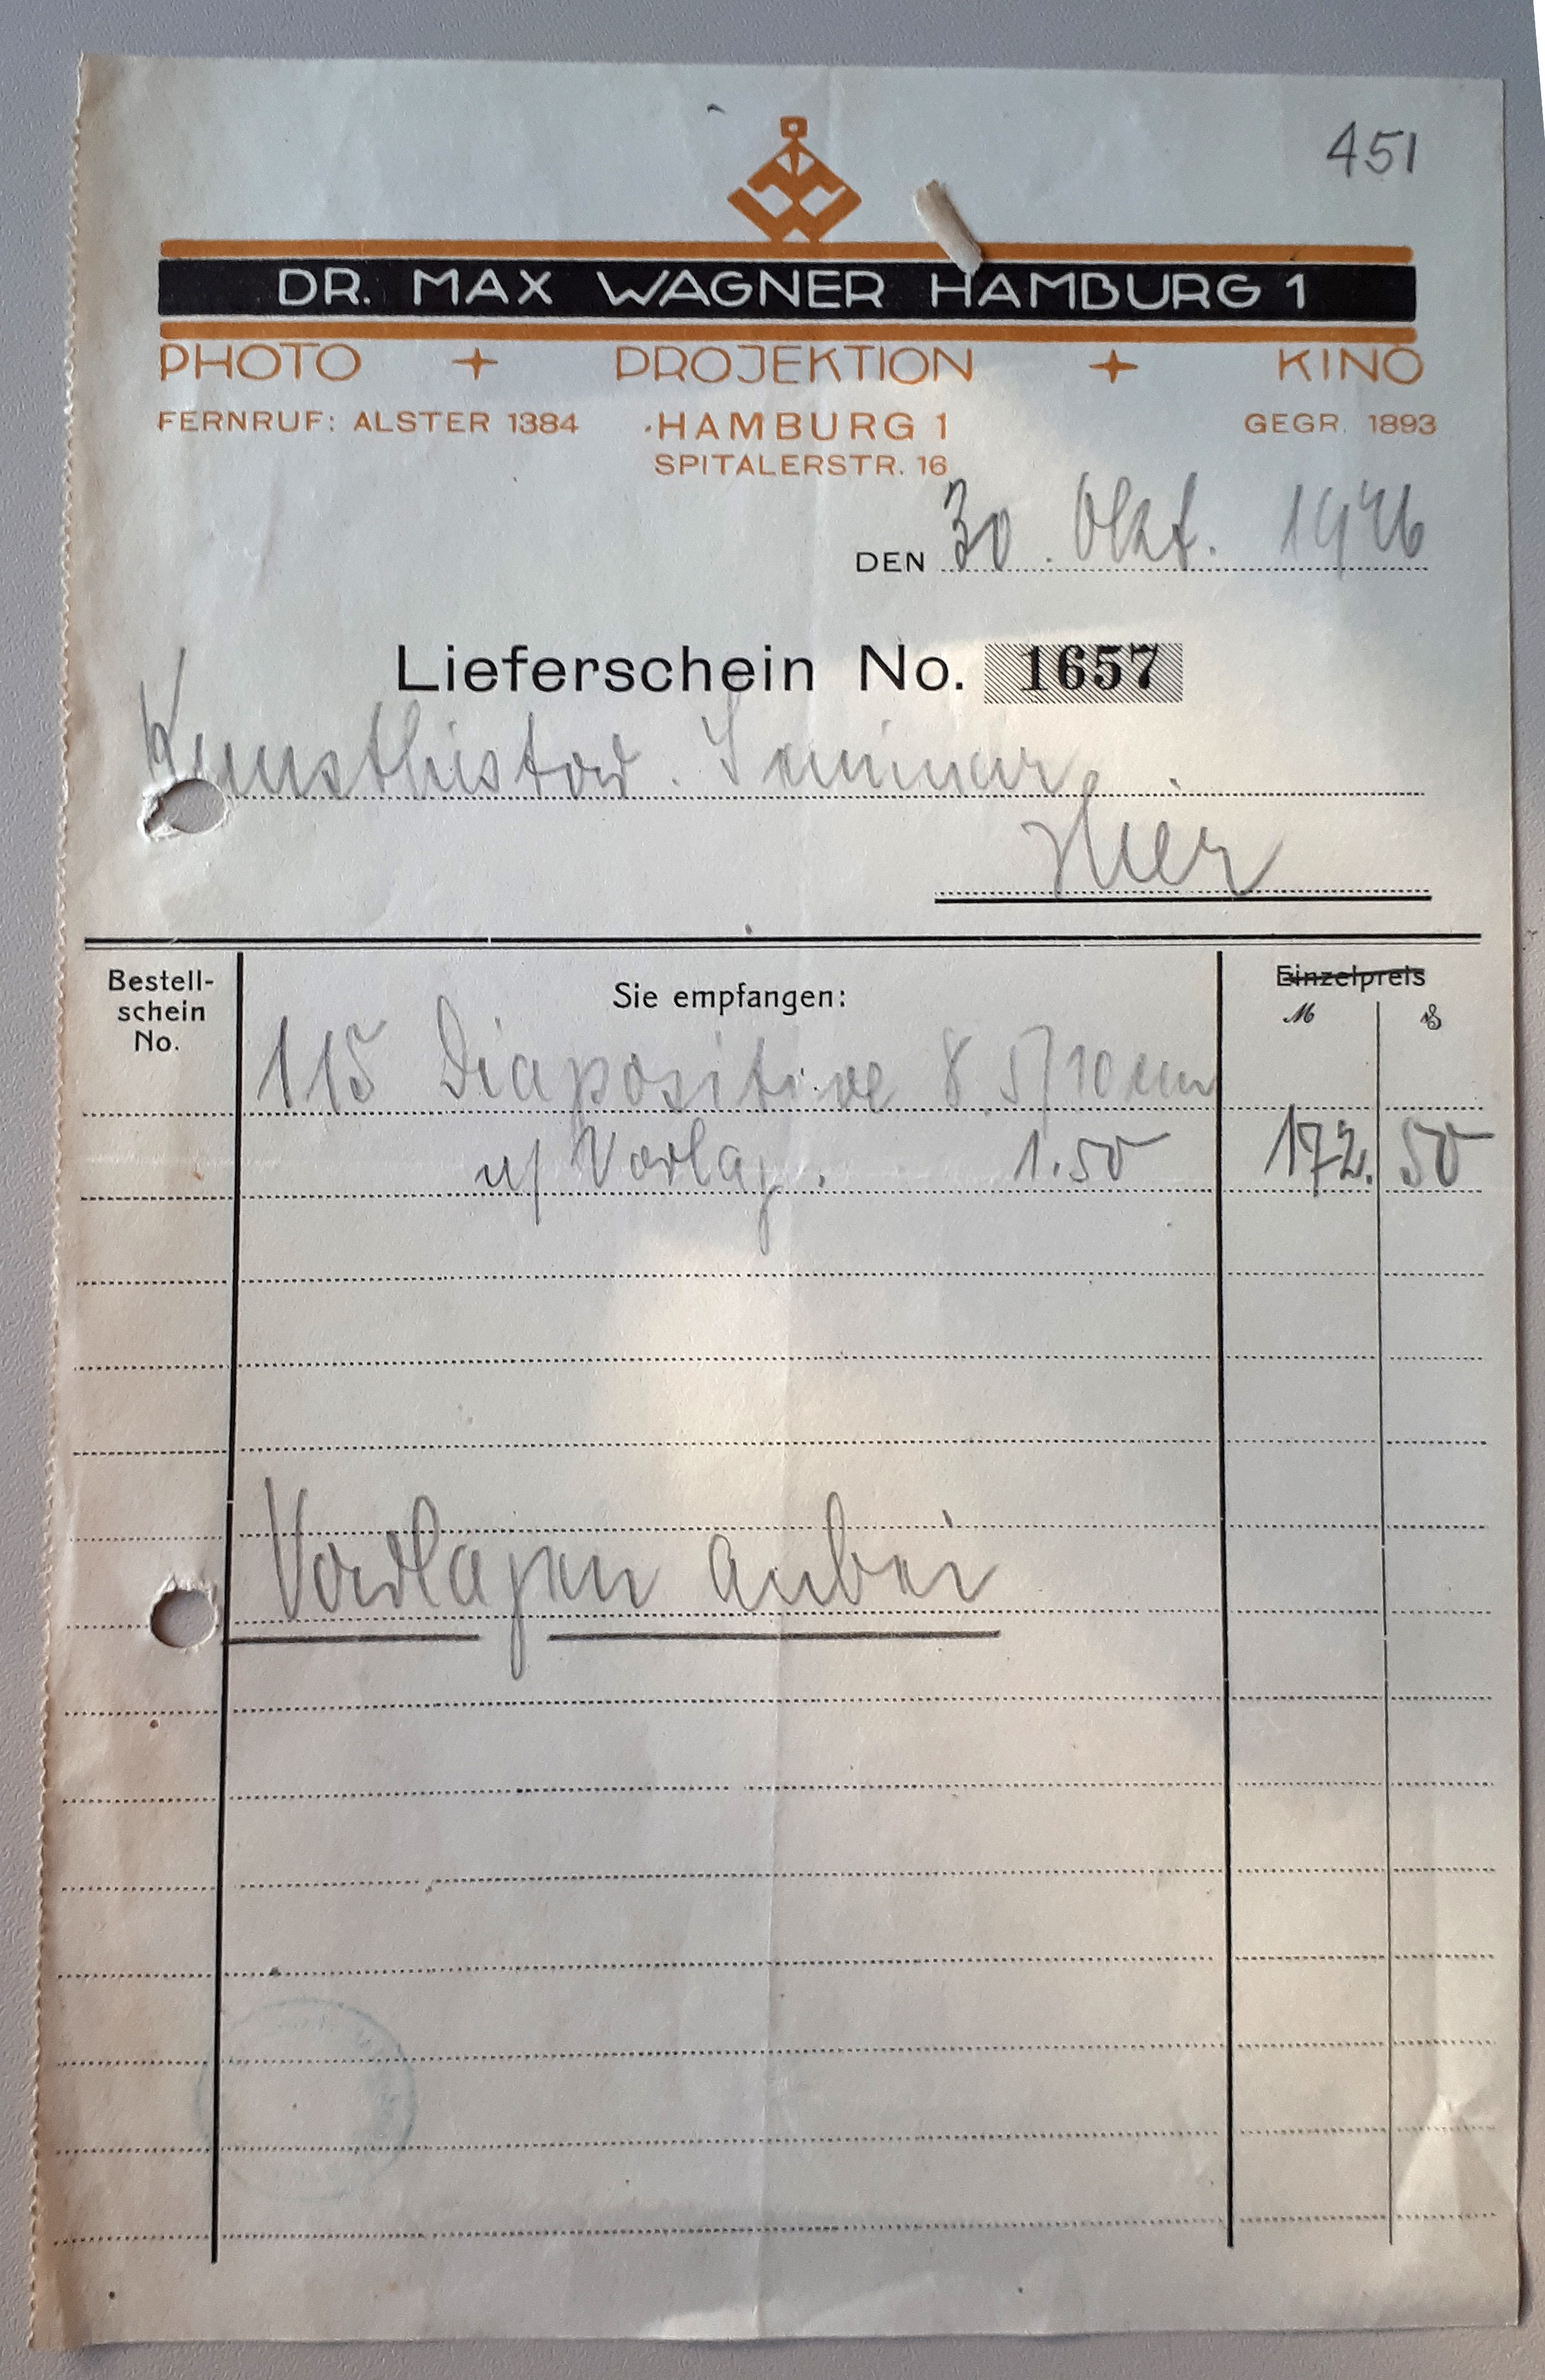 451
DR. MAX WAGNER HAMBURG 1
PHOTO + PROJEKTION + KINO
FERNRUF: ALSTER 1384 HAMBURG 1 GEGR. 1893
SPITALERSTR. 16
DEN 30. Okt. 1946
Lieferschein No. 1657
Kunsthistor. Seminar
Hier
Bestell-
schein
No.
Sie empfangen:
Einzelpreis
M ₰
115 Diapositive 8,5/10 cm
n/ Vorlag. 1.50 172. 50
Vorlagen anbei